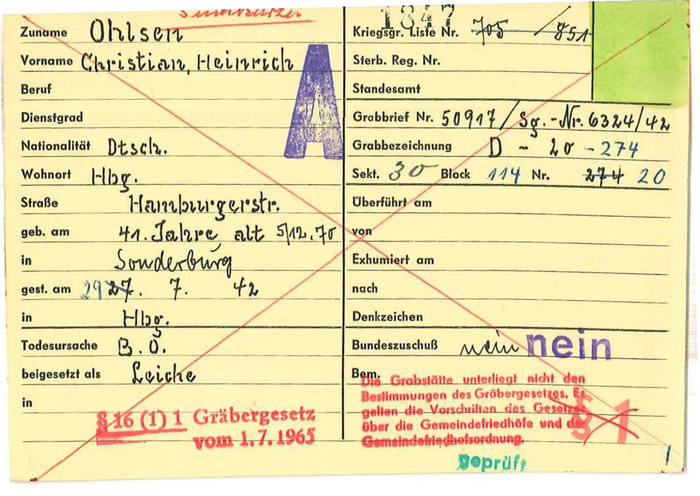 Zuname Ohlsen
Vorname Christian, Heinrich
Beruf
Dienstgrad
Nationalität Dtsch.
Wohnort Hbg.
Straße Hamburgerstr.
geb. am 41. Jahre alt 5/12.70
in Sonderburg
gest. am 29 27. 7. 42
in Hbg.
Todesursache B.O.
beigesetzt als Leiche
in
§ 16 (1) 1 Gräbergesetz
vom 1.7.1965
A
1847
Kriegsgr. Liste Nr. 705 / 851
Sterb. Reg. Nr.
Standesamt
Grabbrief Nr. 50917 / Sg. - Nr. 6324/42
Grabbezeichnung D - 20 - 274
Sekt. 30 Block 114 Nr. 274 20
Überführt am
von
Exhumiert am
nach
Denkzeichen
Bundeszuschuß nein nein
Bem.
Die Grabstätte unterliegt nicht den
Bestimmungen des Gräbergesetzes. Es
gelten die Vorschriften des Gesetzes
über die Gemeindefriedhöfe und der
Gemeindefriedhofsordnung.
§ 1
Geprüft